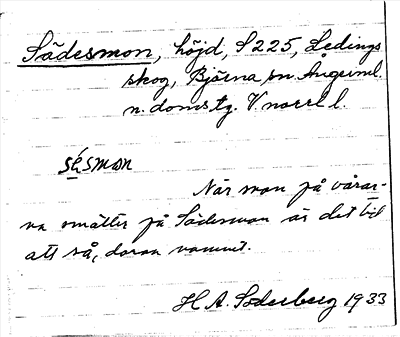 Sädesmon, höjd, S225, Ledings
skog, Bjärna sn Ångerml.
n. doms tg. V norrl l.
sésmon
När man på vårar-
na smälter på Sädesmon är det tid
att så, daran namnet.
H. A. Söderberg 1933